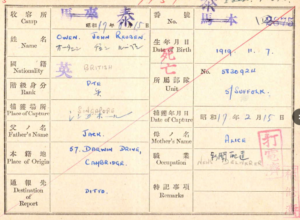 收容所 Camp 泰 昭和17年 月15日
番號 No. 馬本
姓名 Name OWEN. JOHN REUBEN
生年月日 Date of Birth 1919. 11. 7.
國籍 Nationality 英 BRITISH
所屬部隊 Unit S/SUFFOLK.
階級身分 Rank PTE
死亡
捕獲場所 Place of Capture SINGAPORE
捕獲年月日 Date of Capture 昭和17年2月15日
父ノ名 Father's Name JACK.
母ノ名 Mother's Name ALICE
本籍地 Place of Origin 57. DARWIN DRIVE, CAMBRIDGE.
職業 Occupation
通報先 Destination of Report DITTO.
特記事項 Remarks